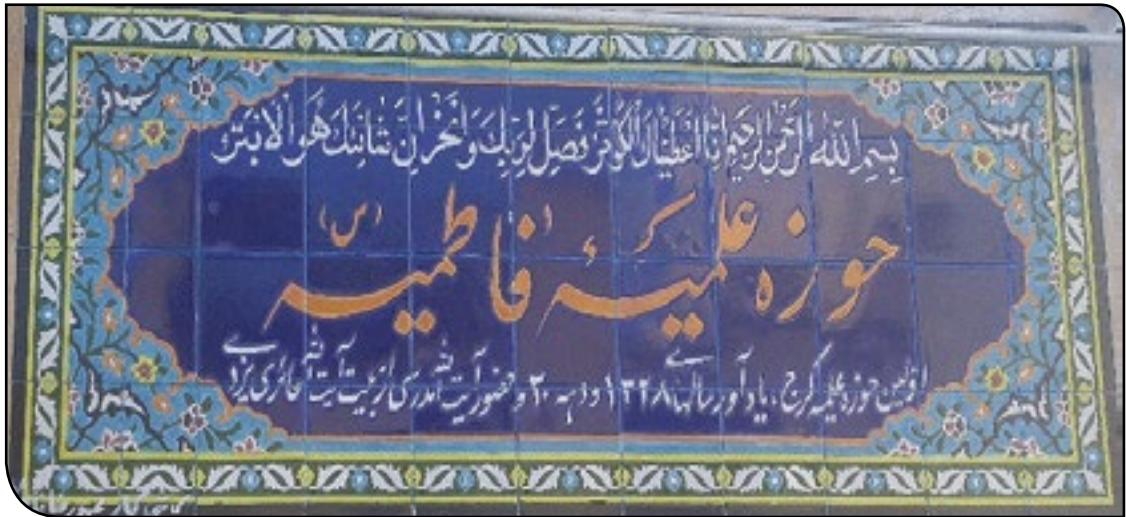 بِسْمِ اللهِ الرَّحْمنِ الرَّحیمِ اِنّا اَعْطَیْناکَ الْکَوْثَرَ فَصَلِّ لِرَبِّکَ وَانْحَرْ اِنَّ شانِئَکَ هُوَ الاَبْتَرُ
حوزه علمیهٔ فاطمیه (س)
اولین حوزه علمیه کرج، یادآور سالهای ۱۳۲۸ و دهه ۳۰ و حضور آیت الله مدرسی از بیت آیت الله حائری یزدی